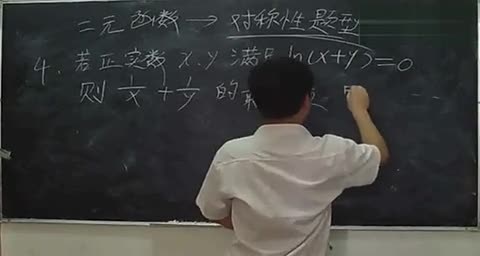 二元函数 → 对称性题型
4. 若正实数 x.y 满足 ln(x+y)=0
则 1/x + 1/y 的最